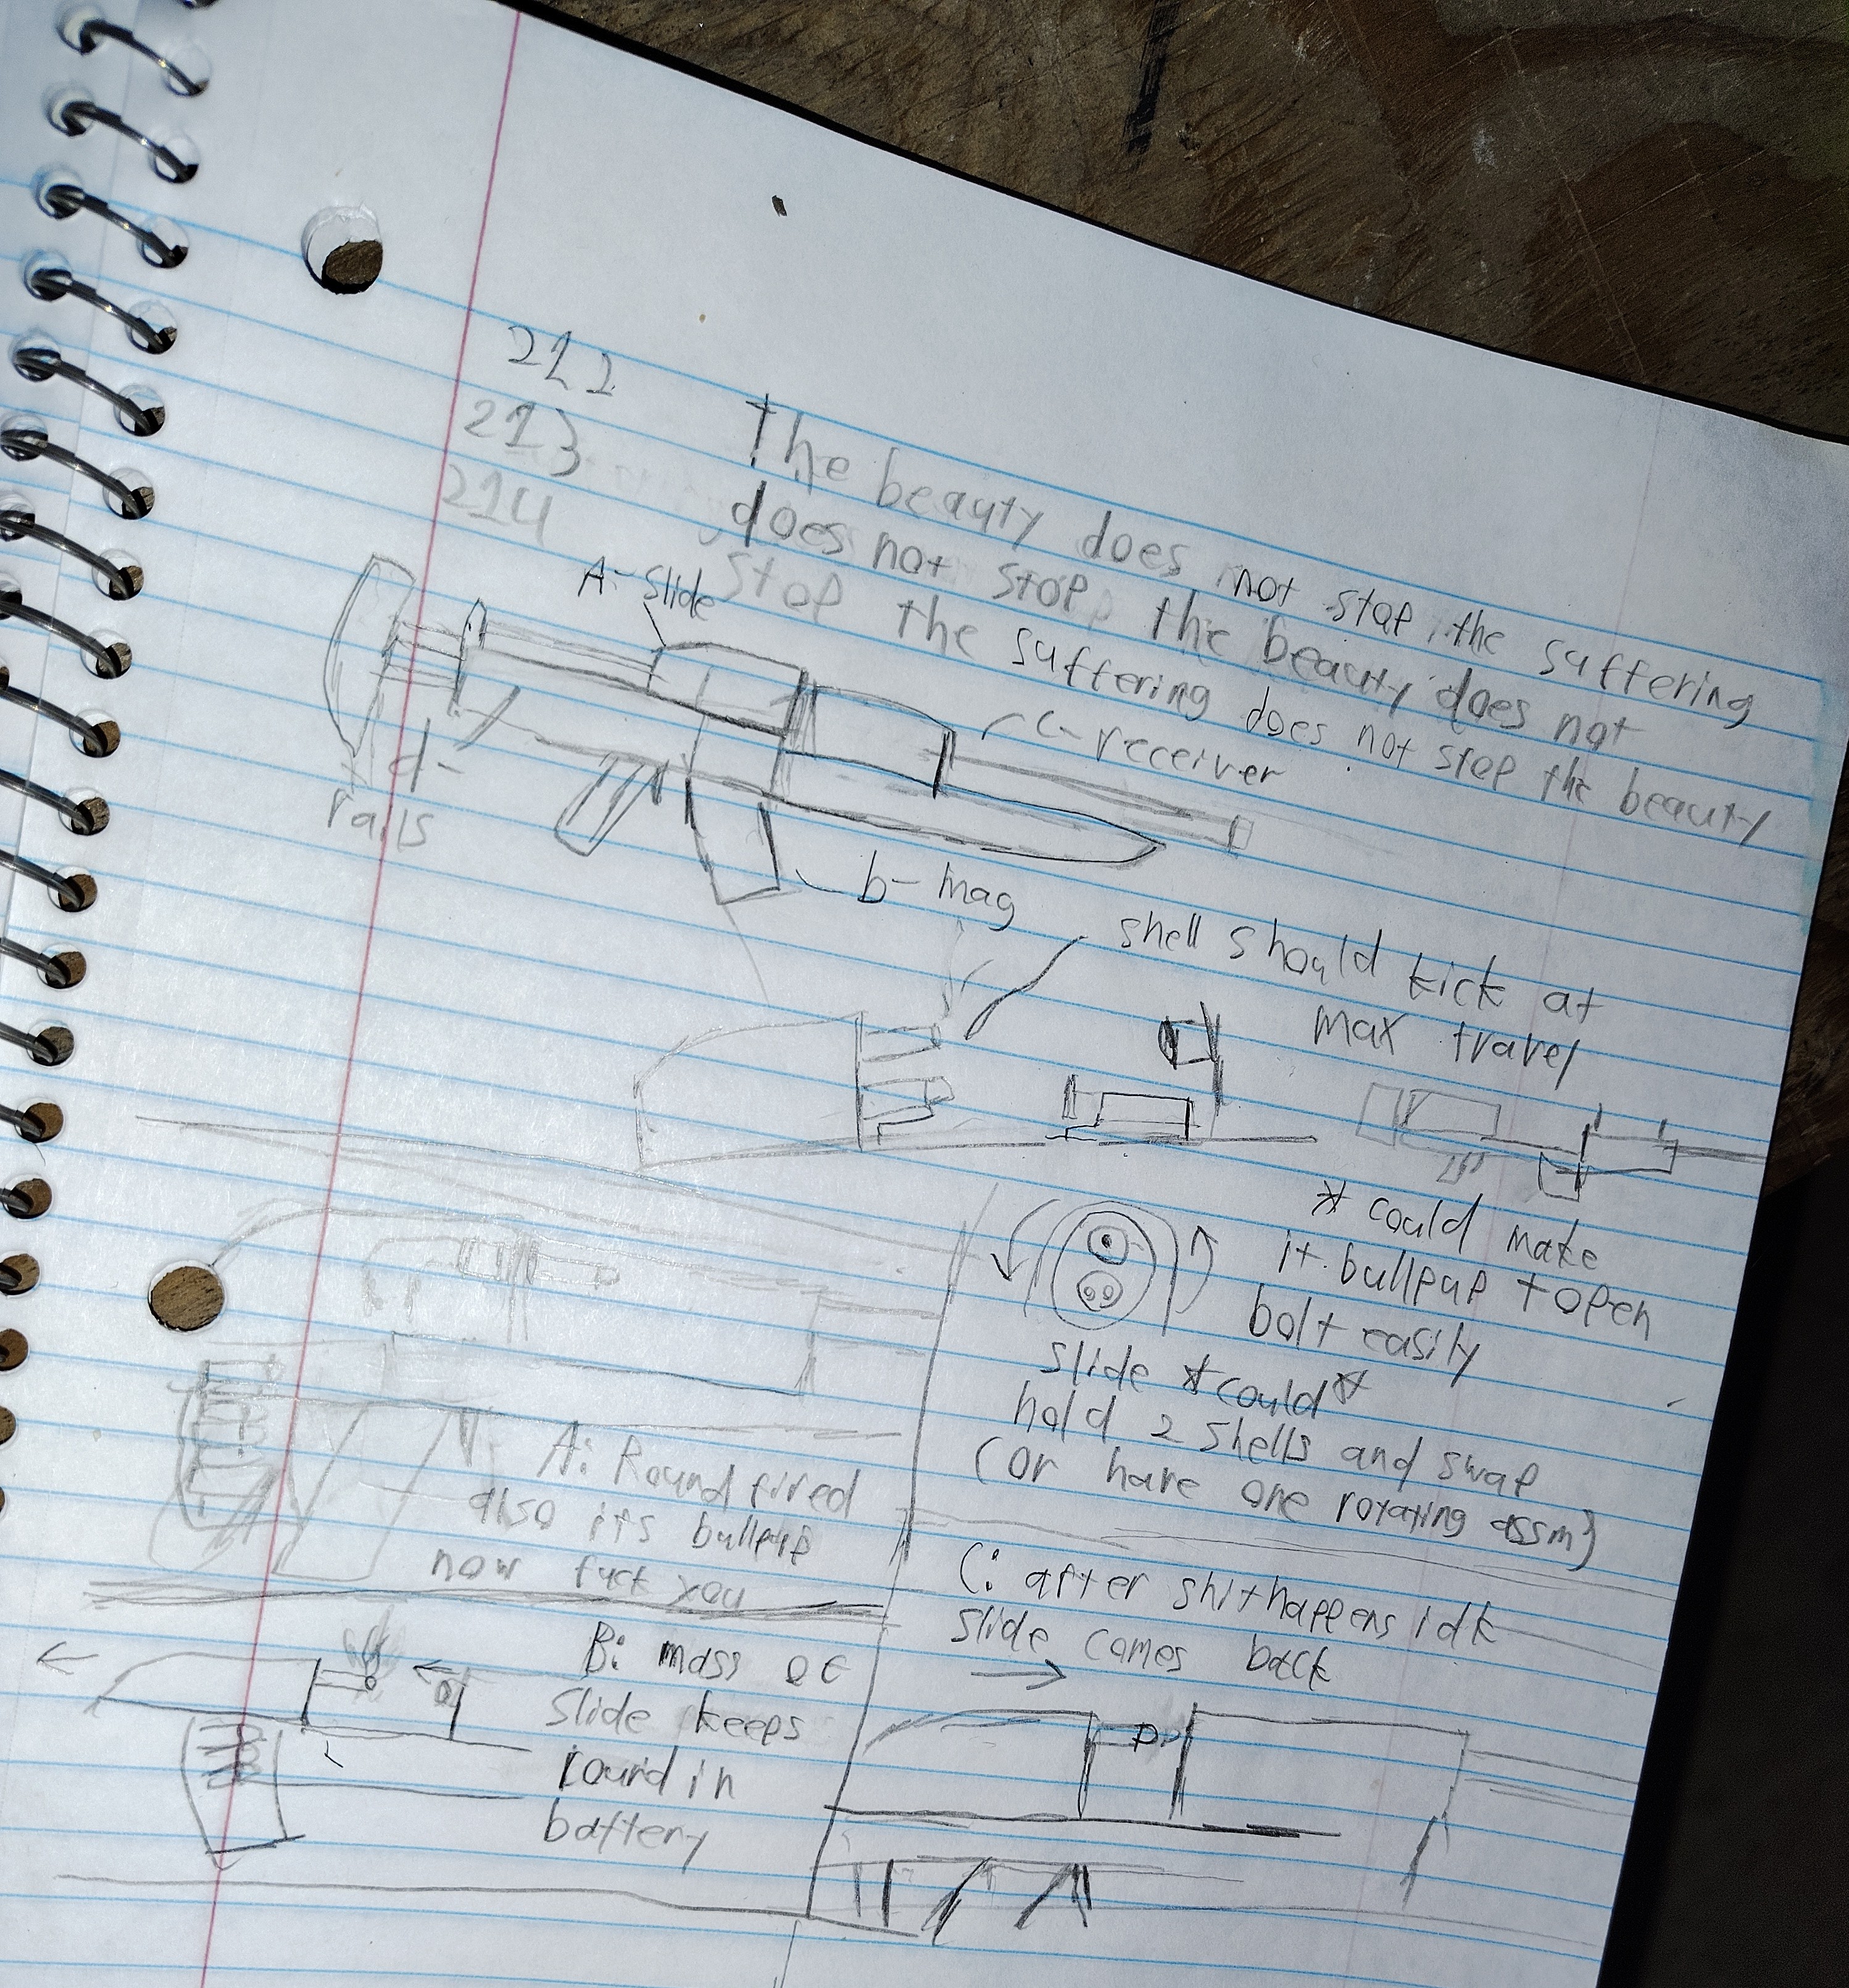 212
213
214
The beauty does not stop the suffering
does not stop the beauty does not
stop the suffering does not stop the beauty
A- slide
C- receiver
d-
rails
b- mag
shell should kick at
max travel
* could make
it bullpup + open
bolt easily
slide *could*
hold 2 shells and swap
(or have one rotating assm)
A: Round fired
also its bullpup
now fuck you
B: mass of
slide keeps
round in
battery
C: after shit happens idk
slide comes back